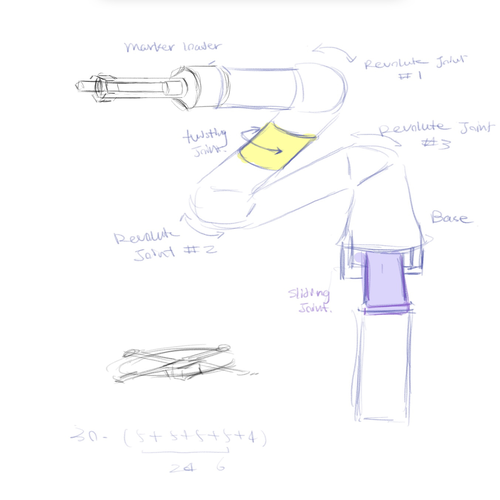 Marker loader
Revolute Joint
#1
twisting
Joint.
Revolute Joint
#3
Revolute
Joint #2
Base
Sliding
Joint.
30- (5+5+5+5+4)
24 6